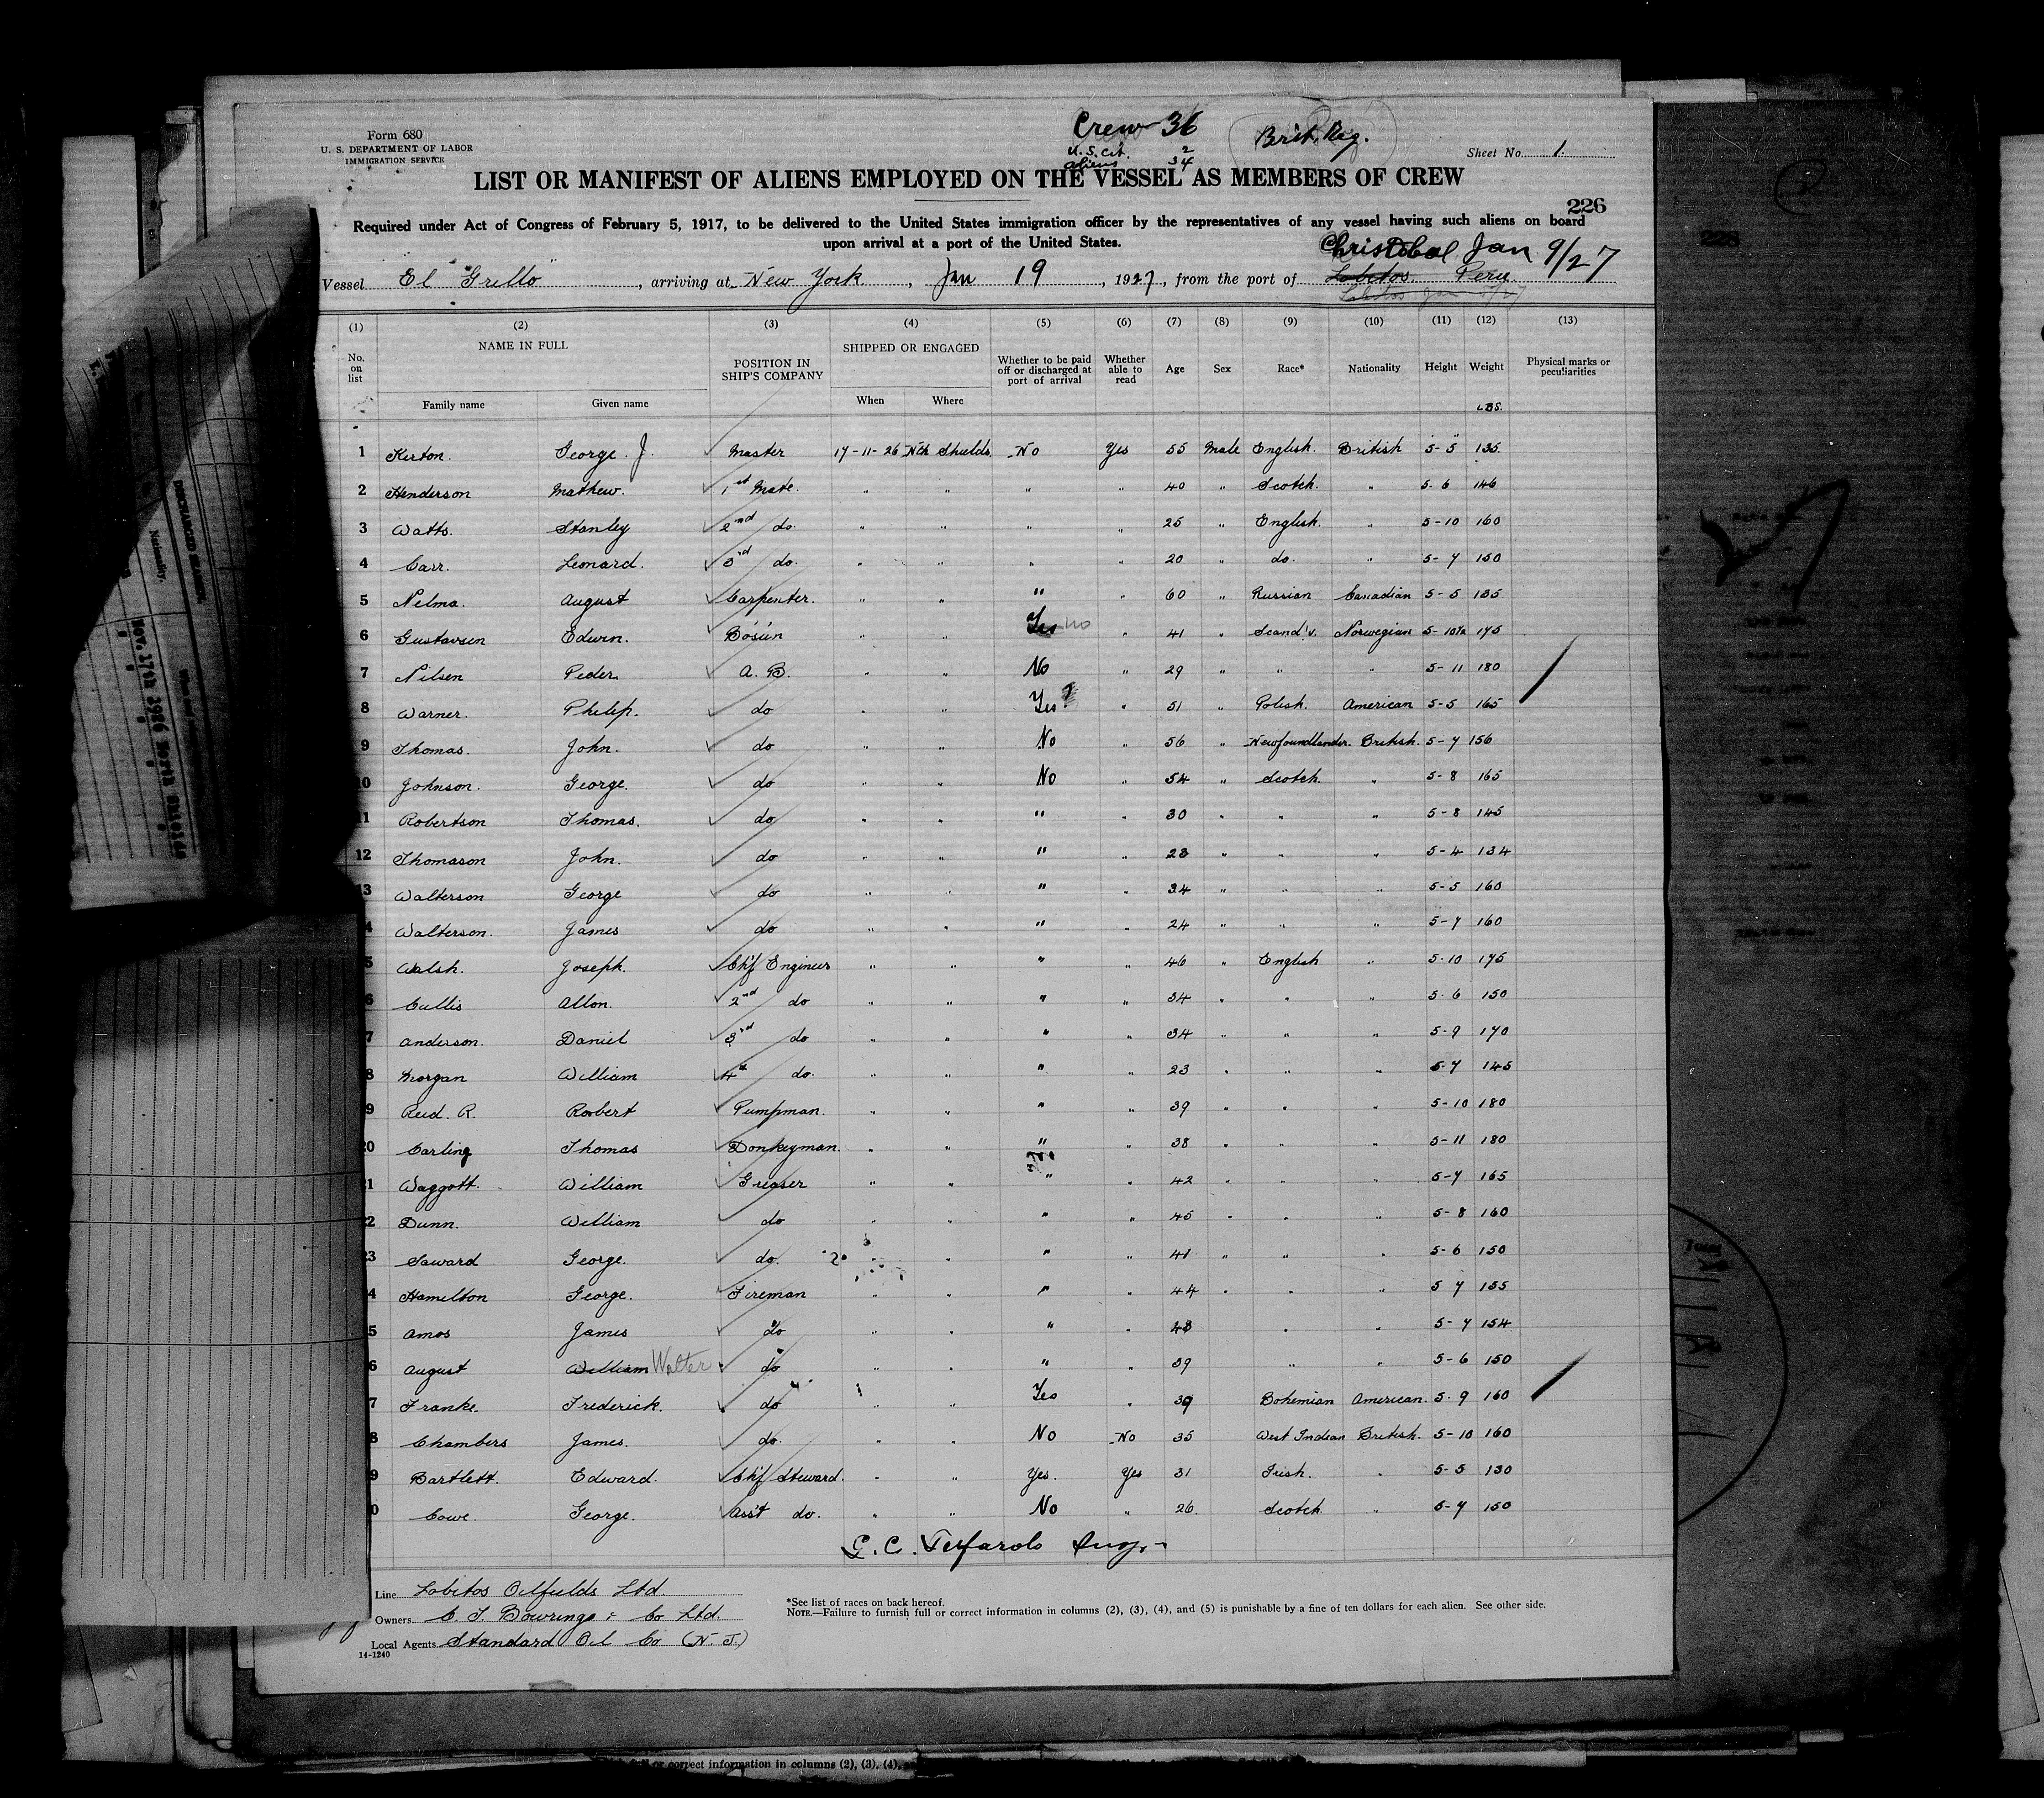 Form 680
U. S. DEPARTMENT OF LABOR
IMMIGRATION SERVICE
Crew 36
U.S. cit. 2
aliens 34
Brit. Reg.
Sheet No. 1
LIST OR MANIFEST OF ALIENS EMPLOYED ON THE VESSEL AS MEMBERS OF CREW
226
Required under Act of Congress of February 5, 1917, to be delivered to the United States immigration officer by the representatives of any vessel having such aliens on board
upon arrival at a port of the United States.
Christobal Jan 9/27
Vessel "El Grillo", arriving at New York, Jan 19, 1927, from the port of Lobitos Peru
(1) (2) (3) (4) (5) (6) (7) (8) (9) (10) (11) (12) (13)
No. on list NAME IN FULL POSITION IN SHIP'S COMPANY SHIPPED OR ENGAGED Whether to be paid off or discharged at port of arrival Whether able to read Age Sex Race* Nationality Height Weight Physical marks or peculiarities
Family name Given name When Where LBS.
1 Kirton. George. J. Master 17-11-26 Nth Shields. No Yes 55 Male English. British 5-5 135.
2 Henderson Mathew. 1st Mate. " " " " 40 " Scotch. " 5-6 146
3 Watts. Stanley 2nd do. " " " " 25 " English. " 5-10 160
4 Carr. Leonard. 3rd do. " " " " 20 " do. " 5-7 150
5 Nelma. August Carpenter. " " " " 60 " Russian Canadian 5-5 135
6 Gustavsen Edwin. Bosun " " Yes no " 41 " Scand'v. Norwegian 5-10½ 175
7 Nilsen Peder. A. B. " " No " 29 " " " 5-11 180
8 Warner. Philip. do " " Yes " 51 " Polish. American 5-5 165
9 Thomas. John. do " " No " 56 " Newfoundlander. British. 5-7 156
10 Johnson. George. do " " No " 54 " Scotch. " 5-8 165
11 Robertson Thomas. do " " " " 30 " " " 5-8 145
12 Thomason John. do " " " " 23 " " " 5-4 134
13 Walterson George do " " " " 34 " " " 5-5 160
4 Walterson. James do " " " " 24 " " " 5-7 160
5 Walsh. Joseph. Chf Engineer " " " " 46 " English " 5-10 175
6 Cullis Allon. 2nd do " " " " 34 " " " 5-6 150
7 Anderson. Daniel 3rd do " " " " 34 " " " 5-9 170
8 Morgan William 4th do. " " " " 23 " " " 5-7 145
9 Reid. R. Robert Pumpman. " " " " 39 " " " 5-10 180
20 Carling Thomas Donkeyman. " " " " 38 " " " 5-11 180
21 Waggott. William Greaser " " " " 42 " " " 5-7 165
22 Dunn. William do " " " " 45 " " " 5-8 160
23 Saward George. do. " " " " 41 " " " 5-6 150
4 Hamilton George. Fireman " " " " 44 " " " 5 7 155
5 Amos James do " " " " 43 " " 5-7 154
6 August William Walter do " " " " 39 " " 5-6 150
7 Franke. Frederick. do " " Yes " 39 Bohemian American. 5-9 160
8 Chambers James. do. " " No No 35 West Indian British. 5-10 160
9 Bartlett. Edward. Chf Steward. " " Yes. Yes 31 Irish. " 5-5 130
0 Cowe. George. Ass't do. " " No " 26. Scotch. " 5-7 150
Line Lobitos Oilfields Ltd.
Owners C. T. Bowrings & Co Ltd.
Local Agents Standard Oil Co (N. J.)
14-1240
*See list of races on back hereof.
NOTE.—Failure to furnish full or correct information in columns (2), (3), (4), and (5) is punishable by a fine of ten dollars for each alien. See other side.
DISCHARGED SEAMEN.
Nationality.
NOV. 17th 1926 North Shields
or correct information in columns (2), (3), (4),